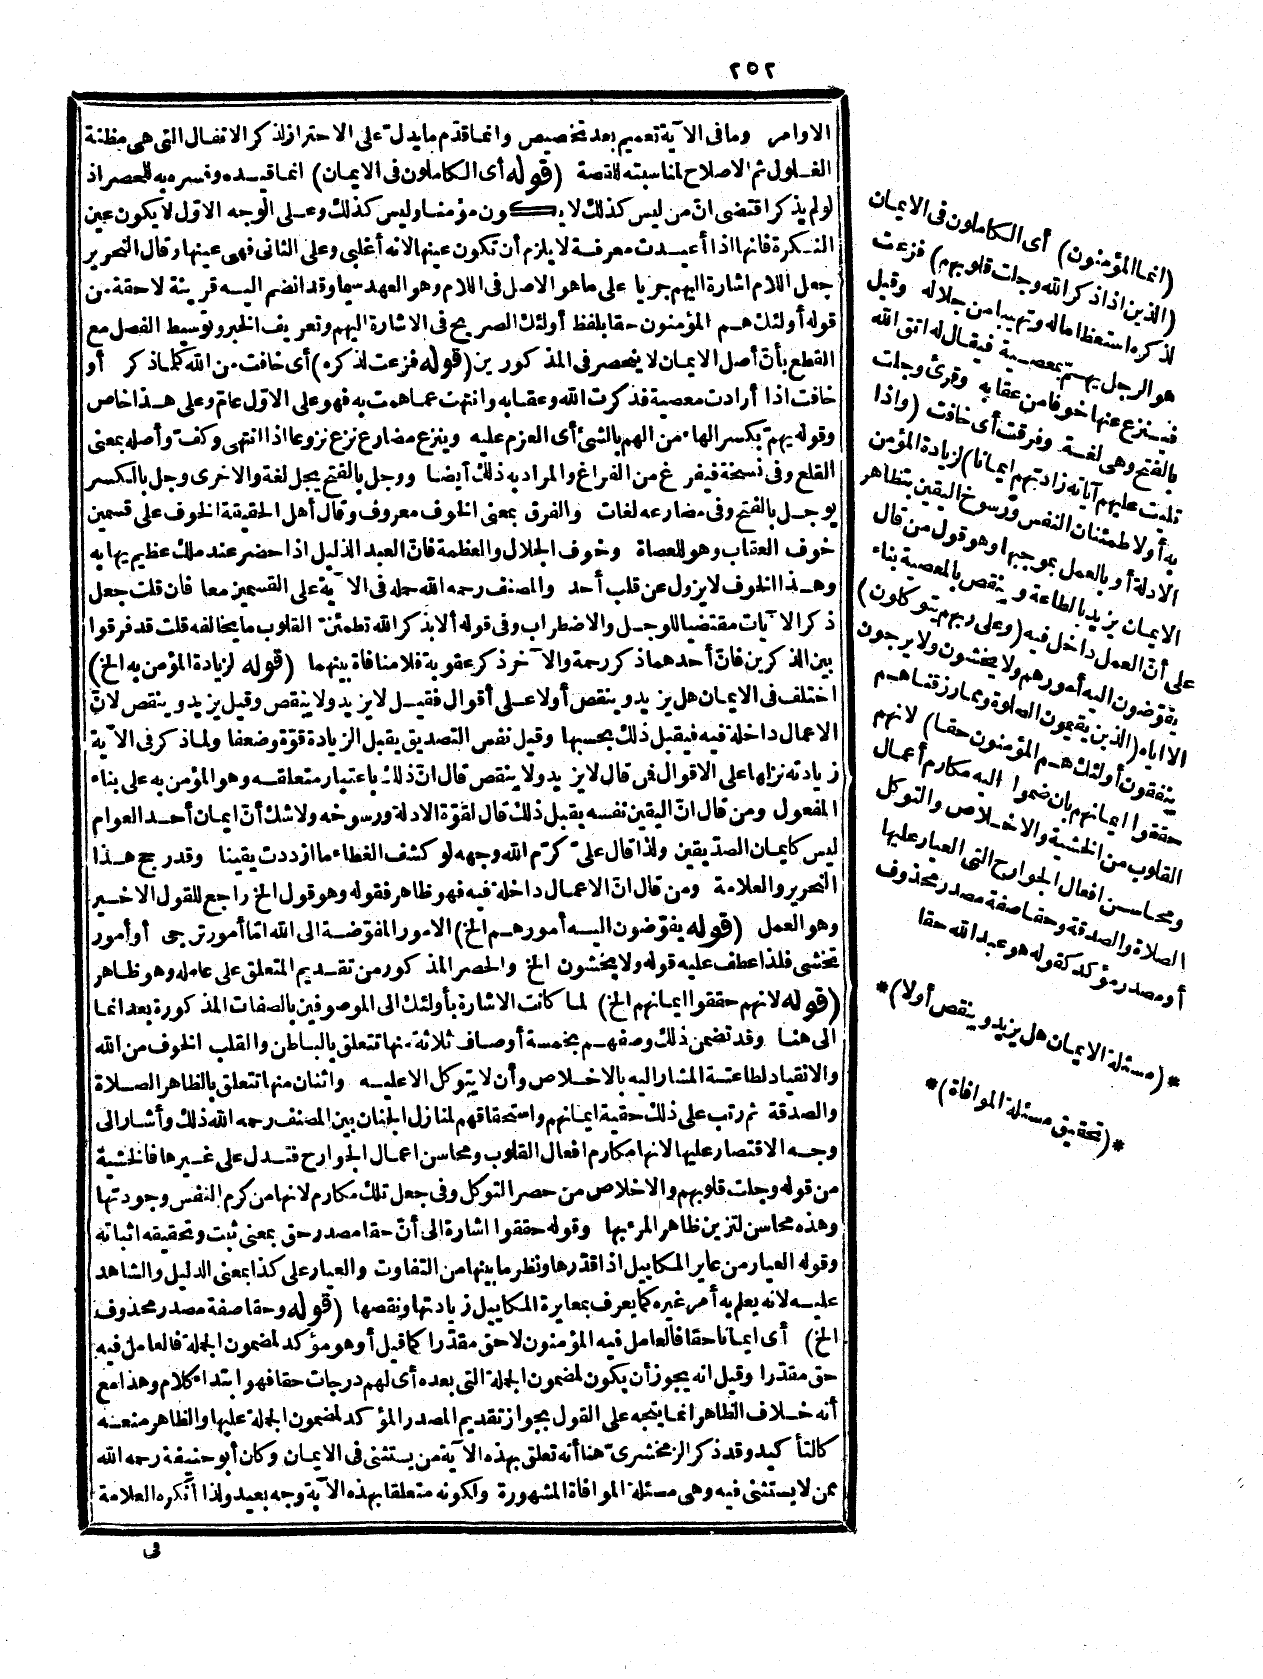 ٢٥٢
الاوامر وما فى الآية تعميم بعد تخصيص وانما قدّم ما يدل على الاحتراز لذكر الانفال التى هى مظنة
الغلول ثم الاصلاح لمناسبته للقصة (قوله أى الكاملون فى الايمان) انما قيده وفسره به للحصر اذ
لو لم يذكر اقتضى انّ من ليس كذلك لا يكون مؤمنا وليس كذلك وعلى الوجه الاوّل لا يكون عين
النكرة فانها اذا أعيدت معرفة لا يلزم أن تكون عينها لانه أغلبى وعلى الثانى فهى عينها وقال النحرير
جعل اللام اشارة اليهم جريا على ما هو الاصل فى اللام وهو العهد سيما وقد انضم اليه قرينة لاحقة من
قوله أولئك هم المؤمنون حقا بلفظ أولئك الصريح فى الاشارة اليهم وتعريف الخبر وتوسيط الفصل مع
القطع بأنّ أصل الايمان لا ينحصر فى المذكورين (قوله فزعت لذكره) أى خافت من الله كلما ذكر أو
خافت اذا أرادت معصية فذكرت الله وعقابه وانتهت عما همت به فهو على الاوّل عام وعلى هذا خاص
وقوله يهمّ بكسر الهاء من الهم بالشئ أى العزم عليه وينزع مضارع نزع نزوعا اذا انتهى وكفّ وأصله بمعنى
القلع وفى نسخة فيفرغ من الفراغ والمراد به ذلك أيضا ووجل بالفتح يجل لغة والاخرى وجل بالكسر
يوجل بالفتح وفى مضارعه لغات والفرق بمعنى الخوف معروف وقال أهل الحقيقة الخوف على قسمين
خوف العقاب وهو للعصاة وخوف الجلال والعظمة فانّ العبد الذليل اذا حضر عند ملك عظيم يهابه
وهذا الخوف لا يزول عن قلب أحد والمصنف رحمه الله حمله فى الآية على القسمين معا فان قلت جعل
ذكر الآيات مقتضيا للوجل والاضطراب وفى قوله ألا بذكر الله تطمئنّ القلوب ما يخالفه قلت قد فرقوا
بين الذكرين فانّ أحدهما ذكر رحمة والآخر ذكر عقوبة فلا منافاة بينهما (قوله لزيادة المؤمن به الخ)
اختلف فى الايمان هل يزيد وينقص أولا على أقوال فقيل لا يزيد ولا ينقص وقيل يزيد وينقص لانّ
الاعمال داخلة فيه فيقبل ذلك بحسبها وقيل نفس التصديق يقبل الزيادة قوّة وضعفا ولما ذكر فى الآية
زيادته نزلها على الاقوال فمن قال لا يزيد ولا ينقص قال انّ ذلك باعتبار متعلقه وهو المؤمن به على بناء
المفعول ومن قال انّ اليقين نفسه يقبل ذلك قال لقوّة الادلة ورسوخه ولا شك أنّ ايمان أحد العوام
ليس كايمان الصدّيقين ولذا قال علىّ كرّم الله وجهه لو كشف الغطاء ما ازددت يقينا وقد رجح هذا
النحرير والعلامة ومن قال انّ الاعمال داخلة فيه فهو ظاهر فقوله وهو قول الخ راجع للقول الاخير
وهو العمل (قوله يفوّضون اليه أمورهم الخ) الامور المفوّضة الى الله امّا أمور ترجى أو أمور
تخشى فلذا عطف عليه قوله ولا يخشون الخ والحصر المذكور من تقديم المتعلق على عامله وهو ظاهر
(قوله لانهم حققوا ايمانهم الخ) لما كانت الاشارة بأولئك الى الموصوفين بالصفات المذكورة بعد انما
الى هنا وقد تضمن ذلك وصفهم بخمسة أوصاف ثلاثة منها تتعلق بالباطن والقلب الخوف من الله
والانقياد لطاعته المشار اليه بالاخلاص وأن لا يتوكل الا عليه واثنان منها تتعلق بالظاهر الصلاة
والصدقة ثم رتب على ذلك حقية ايمانهم واستحقاقهم لمنازل الجنان بين المصنف رحمه الله ذلك وأشار الى
وجه الاقتصار عليها لانها مكارم افعال القلوب ومحاسن اعمال الجوارح فتدل على غيرها فالخشية
من قوله وجلت قلوبهم والاخلاص من حصر التوكل وفى جعل تلك مكارم لانها من كرم النفس وجودتها
وهذه محاسن لتزين ظاهر المرء بها وقوله حققوا اشارة الى أنّ حقا مصدر حق بمعنى ثبت وتحقيقه اثباته
وقوله العيار من عاير المكاييل اذا قدّرها ونظر ما بينها من التفاوت والعيار على كذا بمعنى الدليل والشاهد
عليه لانه يعلم به أمر غيره كما يعرف بمعايرة المكاييل زيادتها ونقصها (قوله وحقا صفة مصدر محذوف
الخ) أى ايمانا حقا فالعامل فيه المؤمنون لا حق مقدّرا كما قيل أو هو مؤكد لمضمون الجملة فالعامل فيه
حق مقدّرا وقيل انه يجوز أن يكون لمضمون الجملة التى بعده أى لهم درجات حقا فهو ابتداء كلام وهذا مع
أنه خلاف الظاهر انما يتجه على القول بجواز تقديم المصدر المؤكد لمضمون الجملة عليها والظاهر منعه
كالتأكيد وقد ذكر الزمخشرىّ هنا أنه تعلق بهذه الآية من يستثنى فى الايمان وكان أبو حنيفة رحمه الله
ممن لا يستثنى فيه وهى مسئلة الموافاة المشهورة ولكونه متعلقا بهذه الآية وجه بعيد ولذا أنكره العلامة
فى
(انما المؤمنون) أى الكاملون فى الايمان
(الذين اذا ذكر الله وجلت قلوبهم) فزعت
لذكره استعظاما له وتهيبا من جلاله وقيل
هو الرجل يهمّ بمعصية فيقال له اتق الله
فينزع عنها خوفا من عقابه وقرئ وجلت
بالفتح وهى لغة وفرقت أى خافت (واذا
تليت عليهم آياته زادتهم ايمانا) لزيادة المؤمن
به أو لاطمئنان النفس ورسوخ اليقين بتظاهر
الادلة أو بالعمل بموجبها وهو قول من قال
الايمان يزيد بالطاعة وينقص بالمعصية بناء
على أنّ العمل داخل فيه (وعلى ربهم يتوكلون)
يفوّضون اليه أمورهم ولا يخشون ولا يرجون
الا اياه (الذين يقيمون الصلوة ومما رزقناهم
ينفقون أولئك هم المؤمنون حقا) لانهم
حققوا ايمانهم بان ضموا اليه مكارم أعمال
القلوب من الخشية والاخلاص والتوكل
ومحاسن افعال الجوارح التى العيار عليها
الصلاة والصدقة وحقا صفة مصدر محذوف
أو مصدر مؤكد كقوله هو عبد الله حقا
*(مسئلة الايمان هل يزيد وينقص أولا)*
*(تحقيق مسئلة الموافاة)*